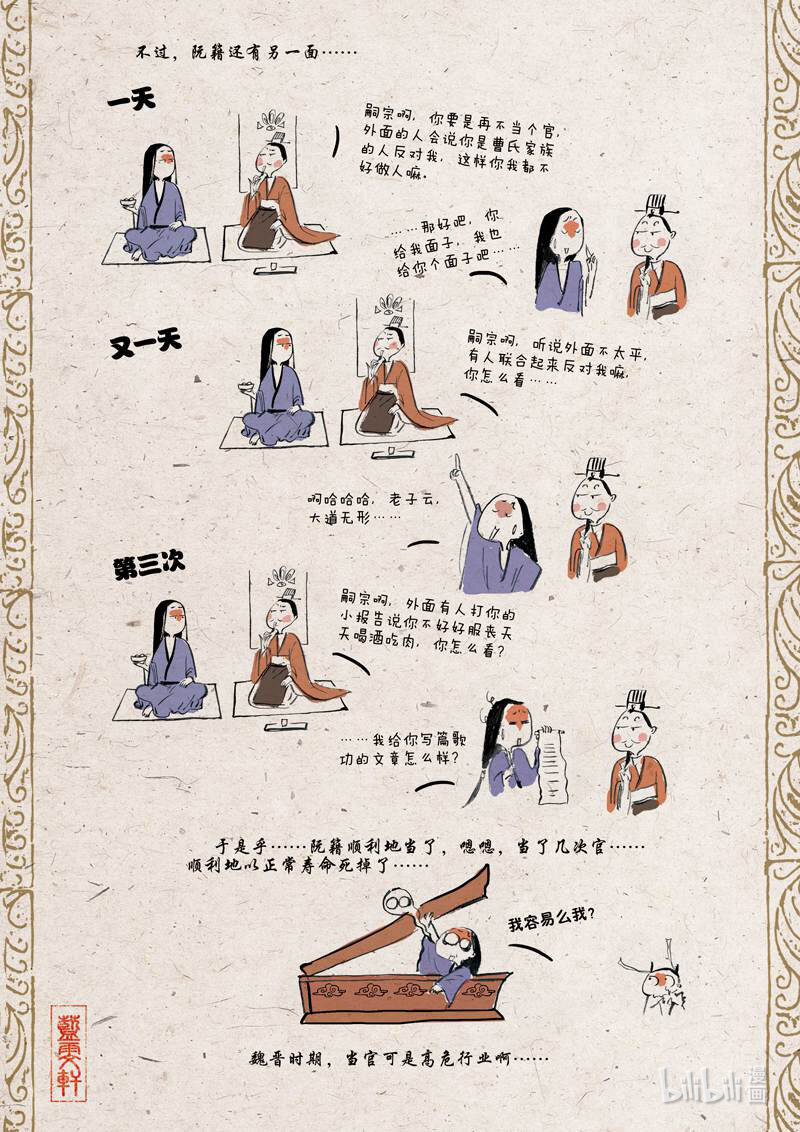 不过，阮籍还有另一面……
一天
嗣宗啊，你要是再不当个官，
外面的人会说你是曹氏家族
的人反对我，这样你我都不
好做人嘛。
……那好吧，你
给我面子，我也
给你个面子吧……
又一天
嗣宗啊，听说外面不太平，
有人联合起来反对我嘛，
你怎么看……
啊哈哈哈，老子云，
大道无形……
第三次
嗣宗啊，外面有人打你的
小报告说你不好好服丧天
天喝酒吃肉，你怎么看？
……我给你写篇歌
功的文章怎么样？
于是乎……阮籍顺利地当了，嗯嗯，当了几次官……
顺利地以正常寿命死掉了……
我容易么我？
魏晋时期，当官可是高危行业啊……
bilibili漫画